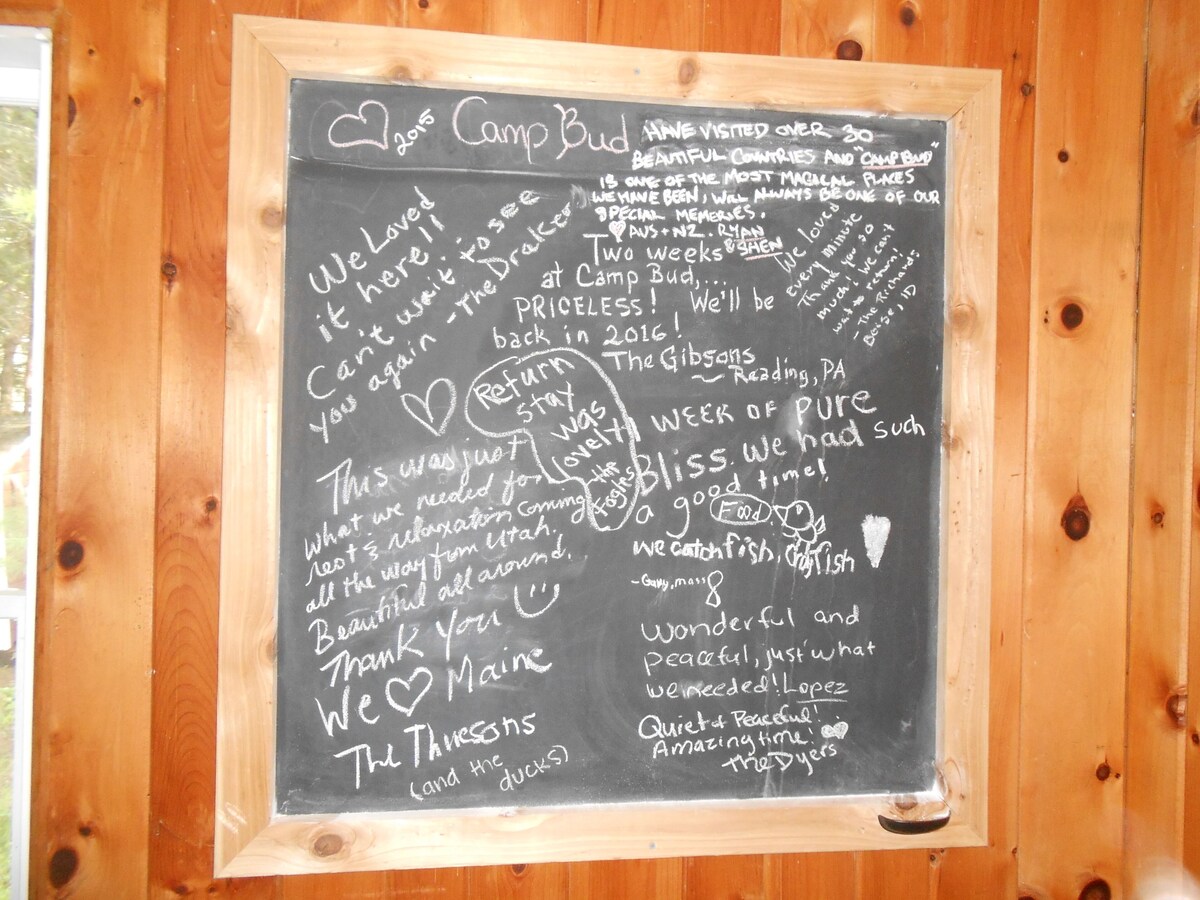 ♡ 2015 Camp Bud
HAVE VISITED OVER 30
BEAUTIFUL COUNTRIES AND "CAMP BUD"
IS ONE OF THE MOST MAGICAL PLACES
WE HAVE BEEN, WILL ALWAYS BE ONE OF OUR
SPECIAL MEMORIES.
♡ AUS + NZ. RYAN
& SHEN
We Loved
it here!!
Can't wait to see
you again - The Drakes
Two weeks
at Camp Bud,...
PRICELESS! We'll be
back in 2016!
The Gibsons
~ Reading, PA
We loved
every minute
Thank you so
much! We can't
wait to return!
- The Richards
Boise, ID
Return
stay
was
lovely
the
Fogles
WEEK OF PURE
Bliss. We had such
a good time!
Food
we catch fish, crayfish
- Gary, mass
This was just
what we needed for
rest & relaxation coming
all the way from Utah.
Beautiful all around.
Thank You
We ♡ Maine
The Thuesons
(and the
ducks)
Wonderful and
peaceful, just what
we needed! Lopez
Quiet & Peaceful!
Amazing time!
The Dyers